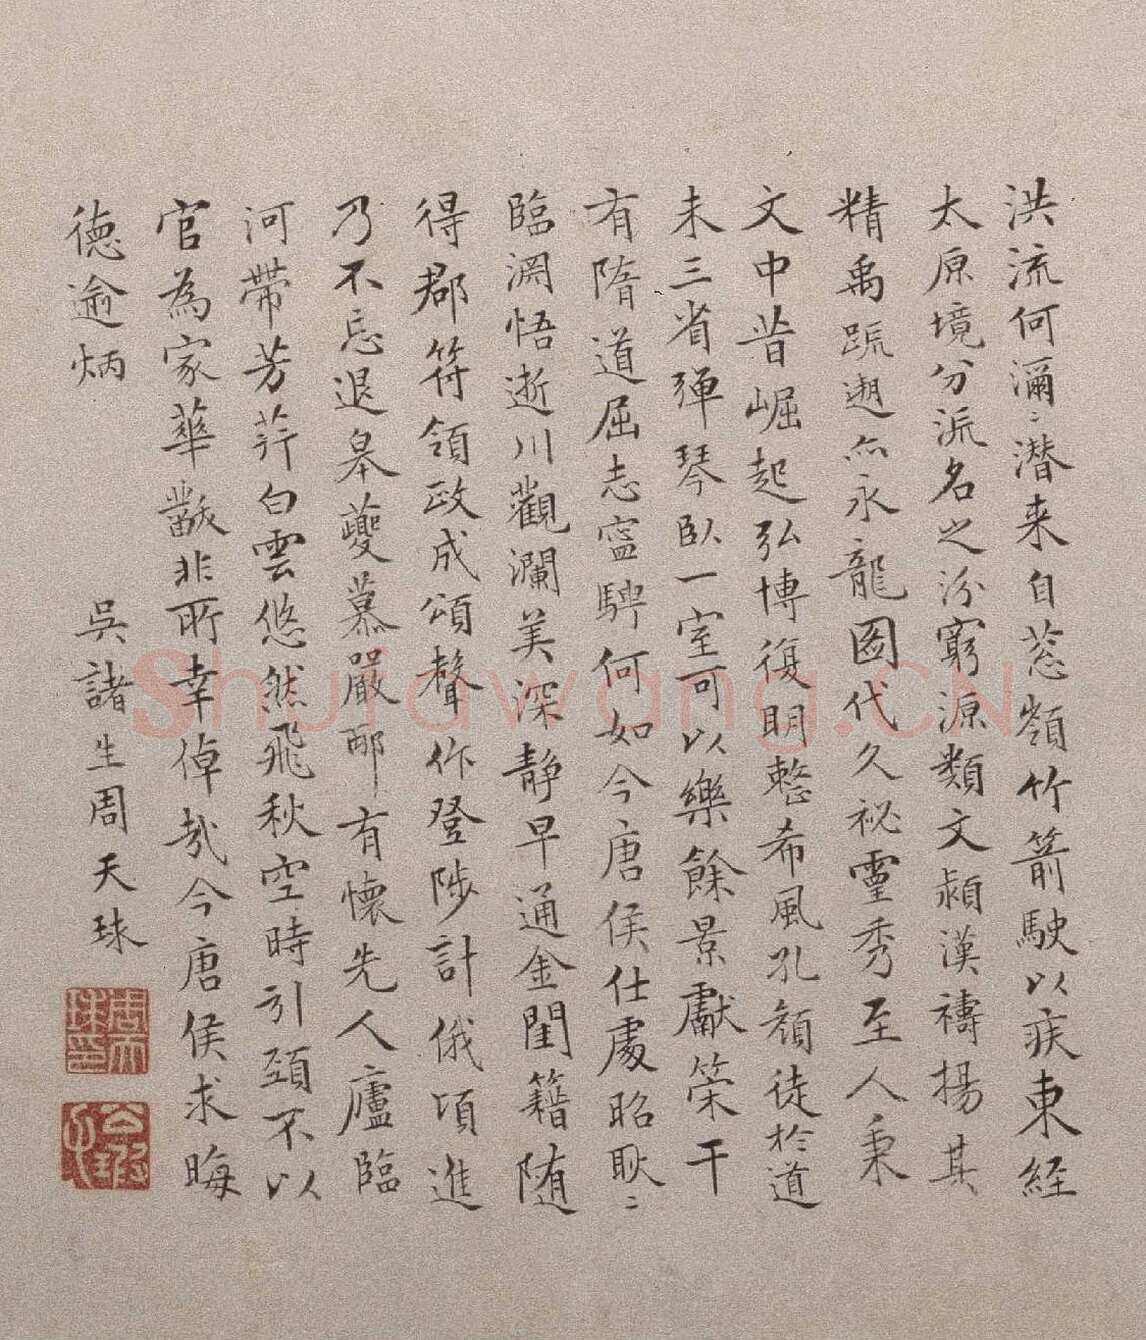 洪流何瀰〻潛来自葱嶺竹箭駛以疾東経
太原境分派名之汾窮源類文潁漢禱揚其
精禹跡遡亦永龍圖代久祕靈秀至人秉
文中昔崛起弘博復明慗希風孔顔徒於道
未三省彈琴臥一室可以樂餘景獻策干
有隋道屈志寍騁何如今唐侯仕處昭耿〻
臨淵悟逝川觀瀾美深静早通金閨籍随
得郡符領政成頌聲作登陟計俄頃進
乃不忘退皋夔慕嚴邴有懐先人廬臨
河帶芳荇白雲悠然飛秋空時引頸不以
官為家華黻非所幸倬哉今唐侯求晦
德逾炳
吳諸生周天球
Shufawang.CN